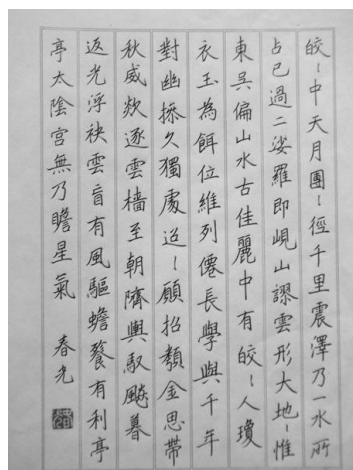 皎〻中天月團〻徑千里震澤乃一水所
占已過二娑羅即峴山謬雲形大地〻惟
東吳偏山水古佳麗中有皎〻人瓊
衣玉為餌位維列僊長學與千年
對幽操久獨處迢〻願招類金思帶
秋威欻逐雲檣至朝隮輿馭飈暮
返光浮袂雲盲有風驅蟾餮有利亭
亭太陰宮無乃瞻星氣 春光